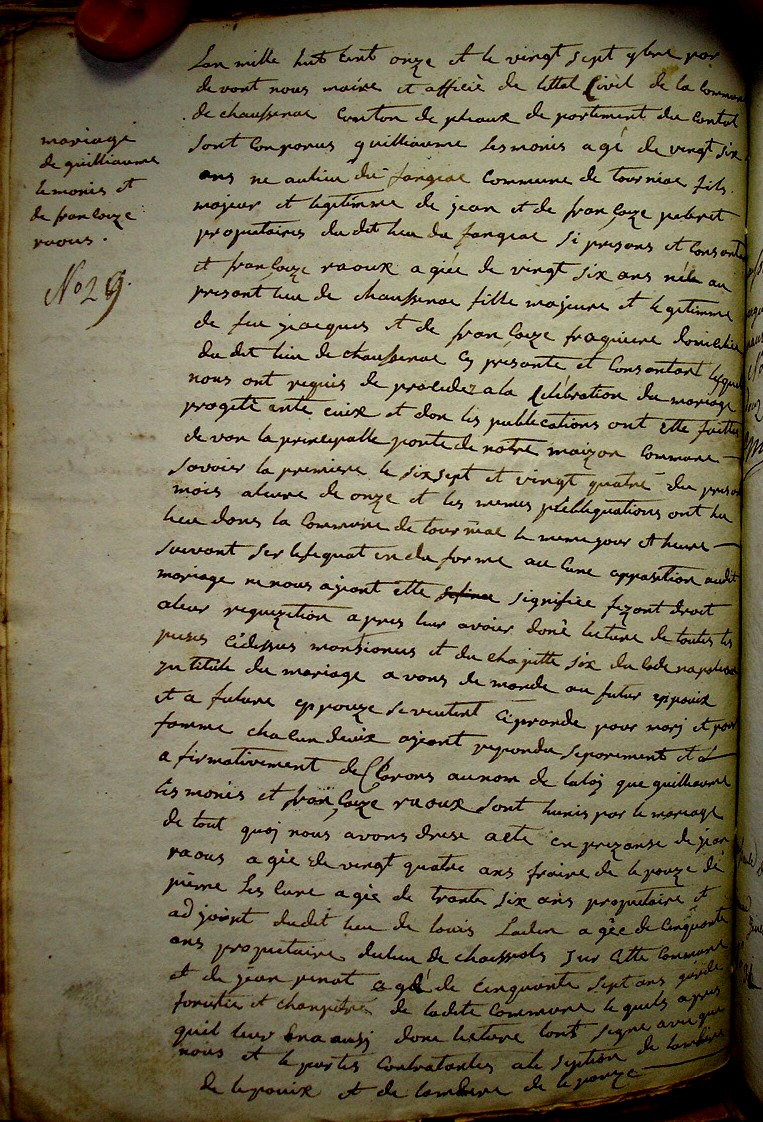 mariage
de guilliaume
lemonies et
de françoize
raoux.
No 29.
Lan mille huit cent onze et le vingt sept 9bre par
devont nous maire et officiè de lettat Civil de la Commune
de chaussenac Conton de pleaux de partiment du Cantal
sont Comparus guilliaume lesmonies agé de vingt six
ans ne au lieu de fangeac Commune de tourniac fils
majeur et legitimme de jean et de françoize
propiutaires du dit lieu du fangeac si presons et Consentan
et françoize raoux agèe de vingt six ans née au
presant lieu de chaussenac fille majeure et legitimme
de feu jiacques et de françoize fraquiere domiciliée
du dit lieu de chaussenac Cy presante et Consantant lesquels
nous ont requis de procedez a la Celébration du mariage
progité entre euix et don les publications ont ette faittes
de van la principalle porte de notre maizon Commune
savoier la premiere le six sept et vingt quatre du preson
mois a leure de onze et les memes publiquations ont lu
lieu dans la Commune de tourniac le meme jour et heure
suivant sertifequat en du forme au Cune opposition audit
mariage ne nous ajant ette significe fezont droit
a leur requizition apres leur avoier doné lecture de toutes les
pieses Cidessus monsioneies et du chapitte six du Code napoleon
yntitulé du mariage avons de mondé au futur eppouix
et a future eppouze se veulent ci prande pour marj et pour
famme chacun deuix ajant repondu separement et
afirmativement deClarons au nom de la loj que guilhaume
lesmonies et françoize raoux sont hunis par le mariage
de tout quoj nous avons drese acte en prezanse de jean
raous agèe de vingt quatre ans fraire de lepouze de
pierre les Cure agèe de trante six ans propiutaire et
adjoint dudit lieu de louis Laden agèe de Cinquante
ans propiutaire du lieu de chaussols sur Cette Commune
et de jean agé de Cinquante sept ans garde
forestie et chanpétre de ladite Commune lequels apres
quil leur ena aussj doné lecture lont signe avec que
nous et le parties Contratantes a le seption de lamere
de lepouix et de lamere de lepouze